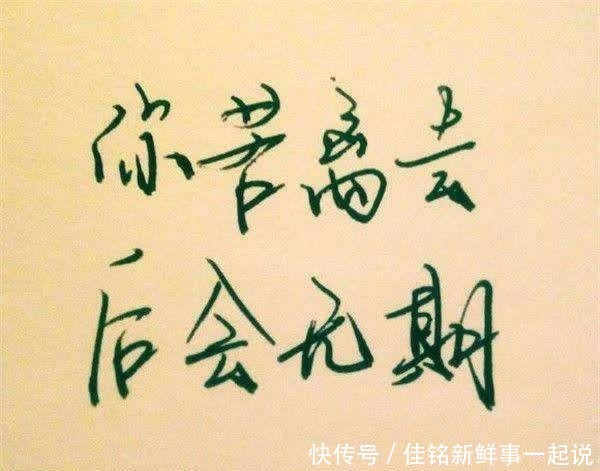 你若离去
后会无期
快传号/佳铭新鲜事一起说